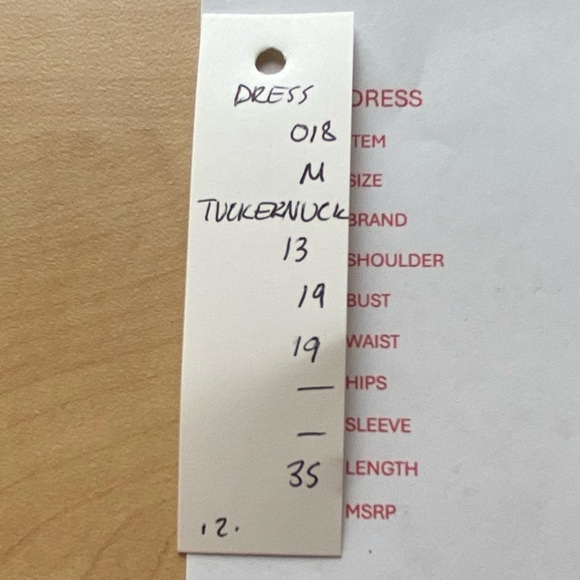 DRESS DRESS
018 TEM
M SIZE
TUCKERNUCK BRAND
13 SHOULDER
19 BUST
19 WAIST
— HIPS
— SLEEVE
35 LENGTH
MSRP
.2.